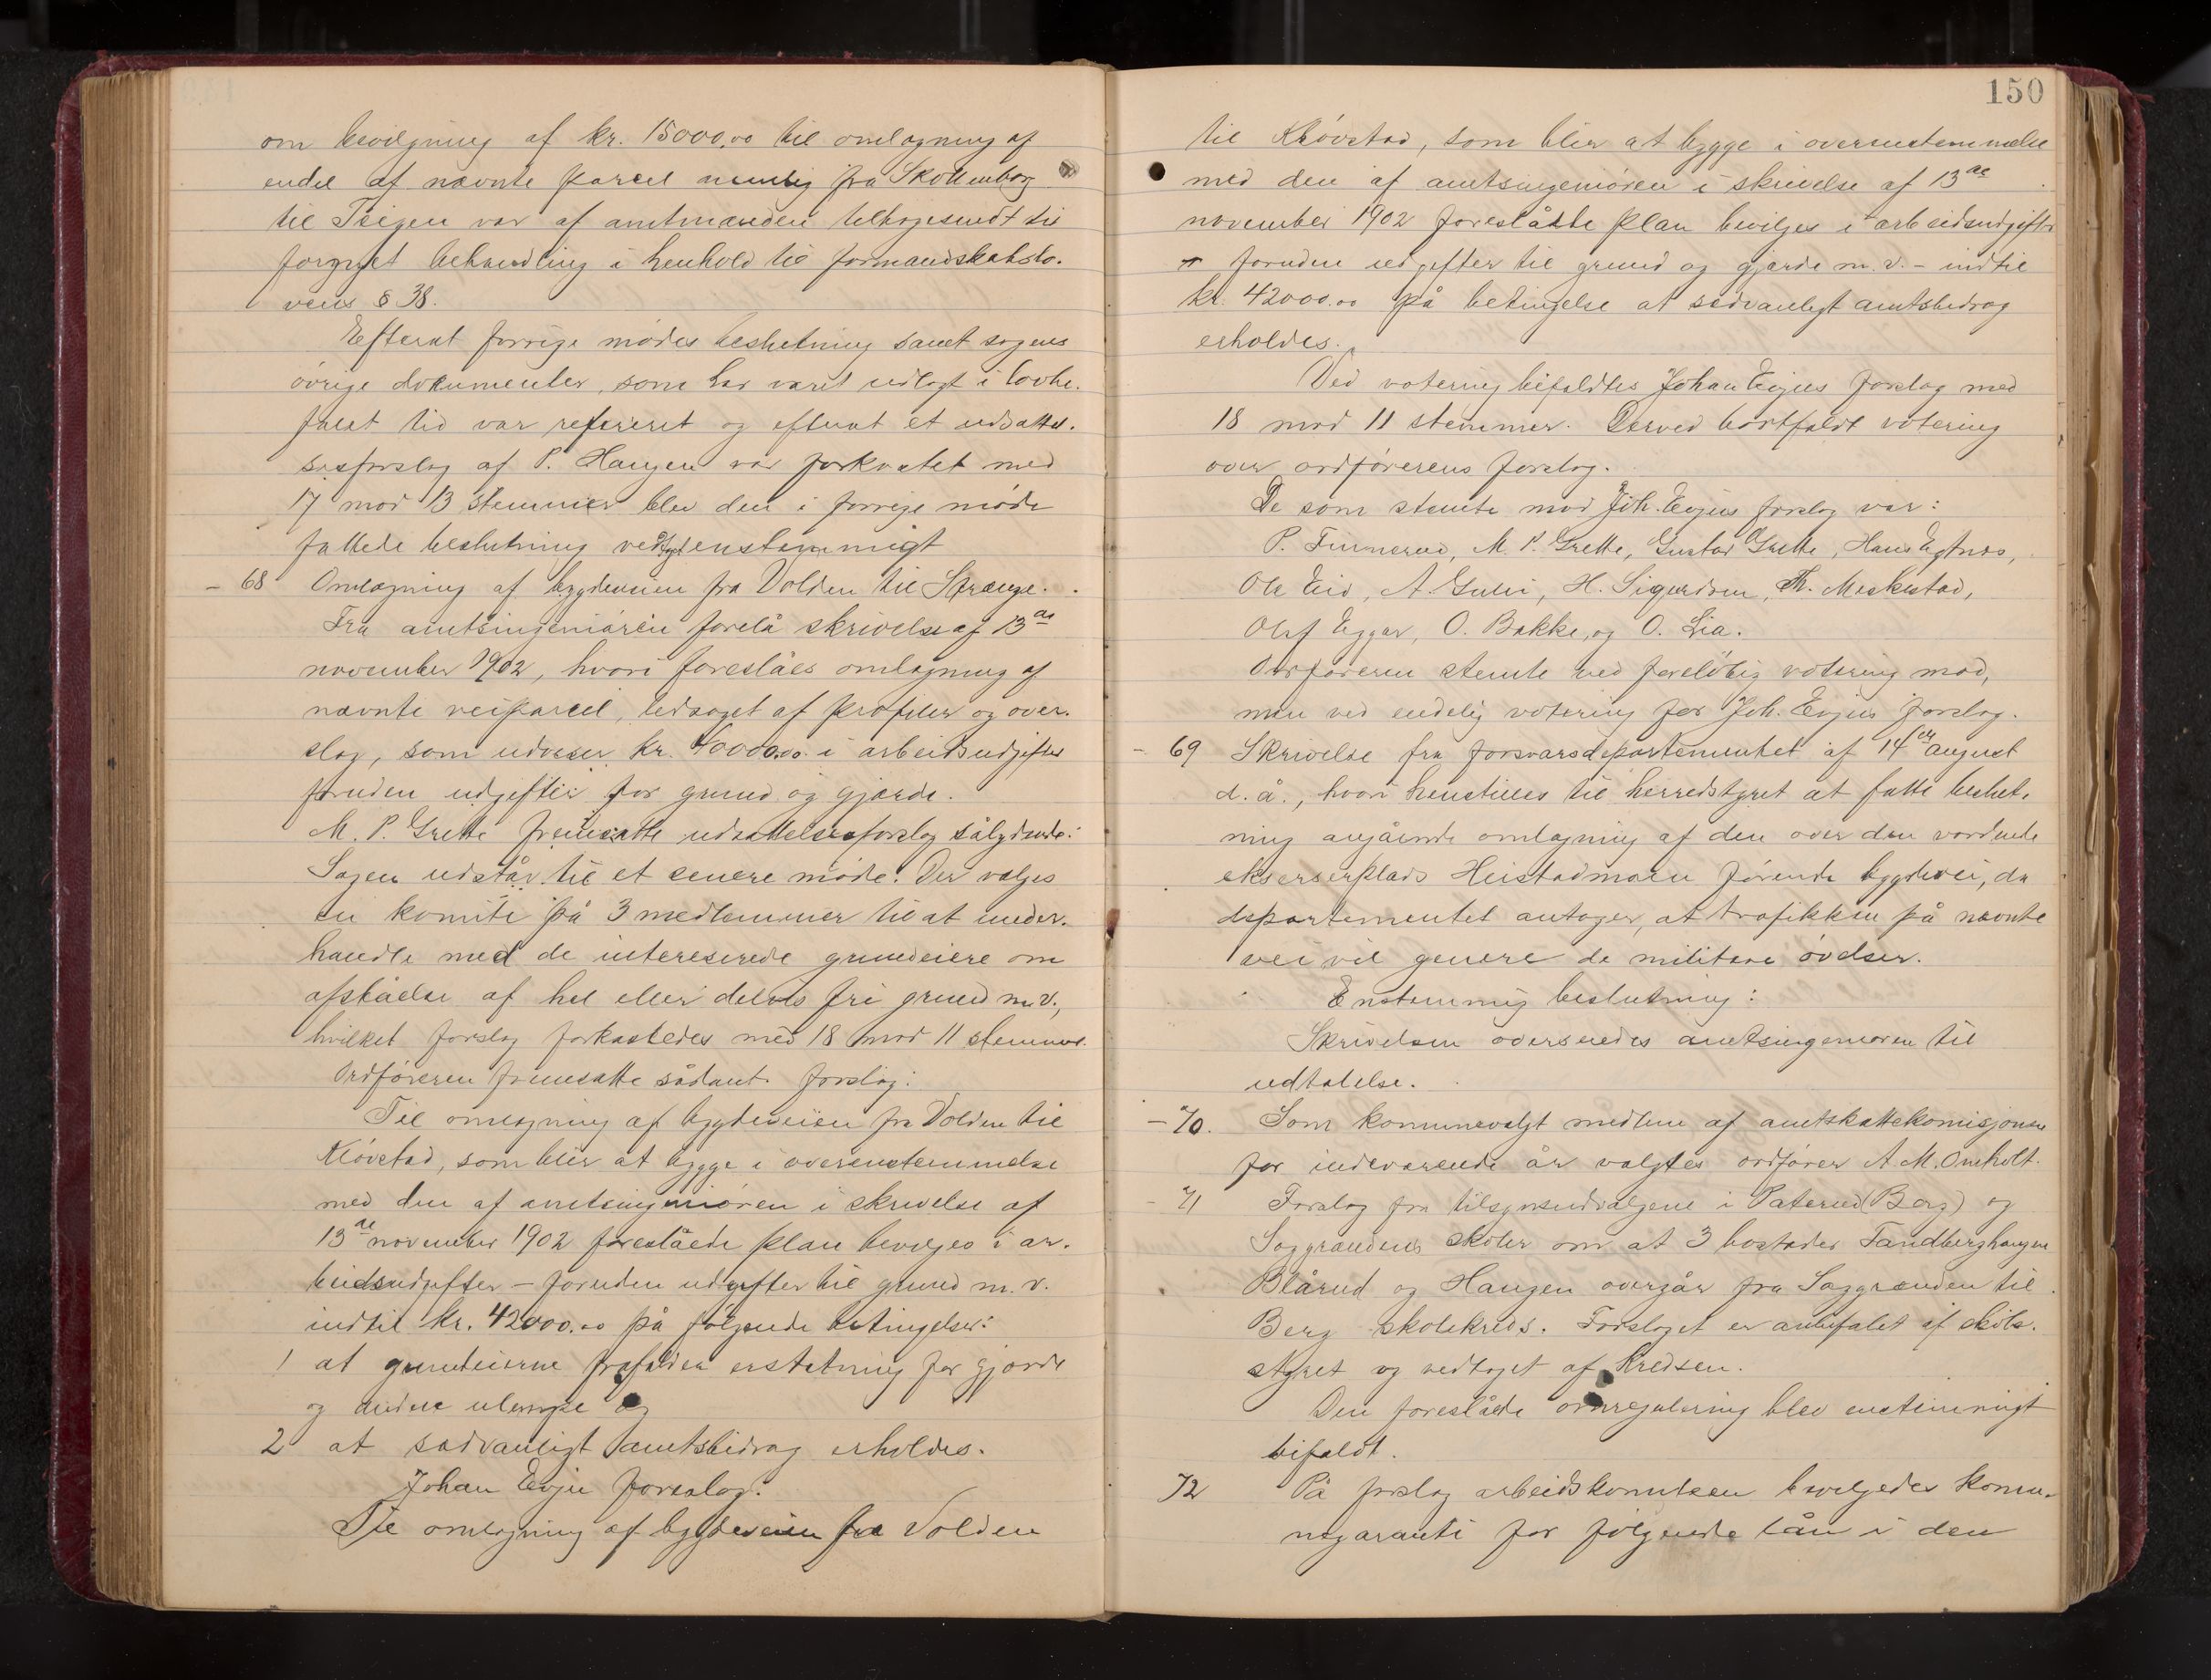 om bevilgning af kr. 15000.00 til omlægning af
endel af nævnte parcel nemlig fra Skollenborg
til Teigen var af amtmanden tilbagesendt til
fornyet behandling i henhold til formandskabslo-
vens § 38.
Efterat forrige mødes beslutning samt sagens
øvrige dokumenter, som har været udlagt i lovbe-
falet tid var refereret og efterat et udsættel-
sesforslag af P. Haugen var forkastet med
17 mod 13 stemmer blev den i forrige møde
fattede beslutning vedtaget enstemmigt
- 68 Omlægning af bygdeveien fra Volden til Sprænge.
Fra amtsingeniøren forelå skrivelse af 13de
november 1902, hvori foreslåes omlægning af
nævnte veiparcel, ledsaget af profiler og over-
slag, som udviser kr. 40000.00 i arbeidsudgifter
foruden udgifter for grund og gjærde.
M. P. Grette fremsatte udsættelsesforslag sålydende:
Sagen udstår til et senere møde. Der vælges
en komite på 3 medlemmer til at under-
handle med de intereserede grundeiere om
afståelse af hel eller delvis fri grund m.v.,
hvilket forslag forkastedes med 18 mod 11 stemmer.
Ordføreren fremsatte sådant forslag:
Til omlægning af bygdeveien fra Volden til
Kløvstad, som blir at bygge i overenstemmelse
med den af amtsingeniøren i skrivelse af
13de november 1902 foreslåede plan bevilges i ar-
beidsudgifter – foruden udgifter til grund m.v.
indtil kr. 42000.00 på følgende betingelser:
1 at grundeierne frafalder erstatning for gjærde
og anden ulempe og
2 at sædvanligt amtsbidrag erholdes.
Johan Evju forslag:
Til omlægning af bygdeveien fra Volden
150
til Kløvstad, som blir at bygge i overenstemmelse
med den af amtsingeniøren i skrivelse af 13de
november 1902 foreslåtte plan bevilges i arbeidsudgifter
- foruden udgifter til grund og gjærde m.v. – indtil
kr. 42000.00 på betingelse at sædvanligt amtsbidrag
erholdes.
Ved votering bifaldtes Johan Evjus forslag med
18 mod 11 stemmer. Derved bortfaldt votering
over ordførerens forslag.
De som stemte mod Joh. Evjus forslag var:
P. Furuerud, M. P. Grette, Gustav Grette, Hans Egtnæs,
Ole Eid, A. Gulli, H. Sigurdsen, Th. Meskestad,
Olaf Eggar, O. Bakke, og O. Lia.
Ordføreren stemte ved foreløbig votering mod,
men ved endelig votering for Joh. Evjus forslag.
- 69 Skrivelse fra forsvarsdepartementet af 14de august
d. å., hvori henstilles til herredstyret at fatte beslut-
ning angående omlægning af den over den vordende
ekserserplads Heistadmoen førende bygdevei, da
departementet antager, at trafikken på nævnte
vei vil genere de militære øvelser.
Enstemmig beslutning:
Skrivelsen oversendes amtsingeniøren til
udtalelse.
- 70. Som kommunevalgt medlem af amtskattekomisjonen
for indeværende år valgtes ordfører A. M. Omholt.
- 71 Forslag fra tilsynsudvalgene i Paterud (Berg) og
Saggrændens skoler om at 3 bosteder Tandberghaugen
Blårud og Haugen overgår fra Saggrænden til
Berg skolekreds. Forslaget er anbefalet af skole-
styret og vedtaget af kredsen.
Den foreslåede omregulering blev enstemmigt
bifaldt.
72 På forslag arbeidskomiteen bevilgedes komu-
negaranti for følgende lån i den